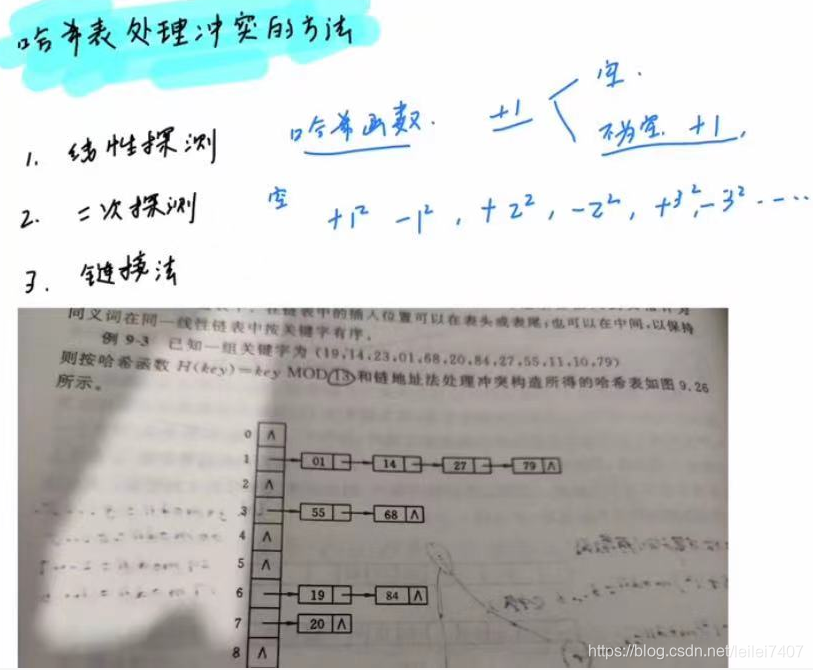 哈希表处理冲突的方法
1. 线性探测 哈希函数. +1 空.
不为空. +1,
2. 二次探测 空 +1² -1², +2², -2², +3², -3² ....
3. 链接法
同义词在同一线性链表中按关键字有序。
例 9-3 已知一组关键字为(19,14,23,01,68,20,84,27,55,11,10,79)
则按哈希函数 H(key)=key MOD 13 和链地址法处理冲突构造所得的哈希表如图 9.26
所示。
0 ∧
1 01 14 27 79 ∧
2 ∧
3 55 68 ∧
4 ∧
5 ∧
6 19 84 ∧
7 20 ∧
8 ∧
https://blog.csdn.net/leilei7407